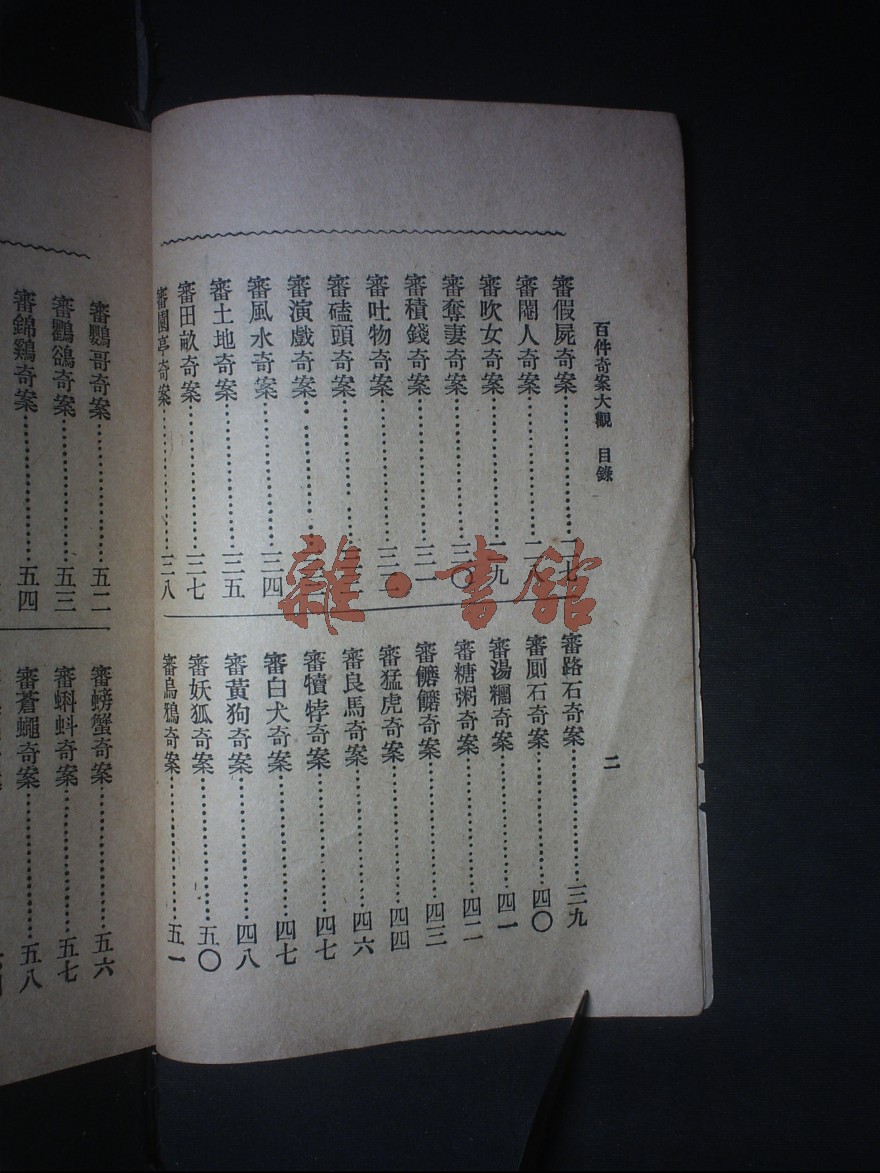 百件奇案大觀 目錄
二
審假屍奇案…………二七
審閹人奇案…………二八
審吹女奇案…………二九
審奪妻奇案…………三〇
審積錢奇案…………三一
審吐物奇案…………
審磕頭奇案…………
審演戲奇案…………
審風水奇案…………三四
審土地奇案…………三五
審田畝奇案…………三七
審園亭奇案…………三八
審路石奇案…………三九
審厠石奇案…………四〇
審湯糰奇案…………四一
審糖粥奇案…………四二
審饝饝奇案…………四三
審猛虎奇案…………四四
審良馬奇案…………四六
審犢牸奇案…………四七
審白犬奇案…………四七
審黃狗奇案…………四八
審妖狐奇案…………五〇
審烏鴉奇案…………五一
審鸚哥奇案…………五二
審鸜鵒奇案…………五三
審錦鷄奇案…………五四
審螃蟹奇案…………五六
審蝌蚪奇案…………五七
審蒼蠅奇案…………五八
雜·書館